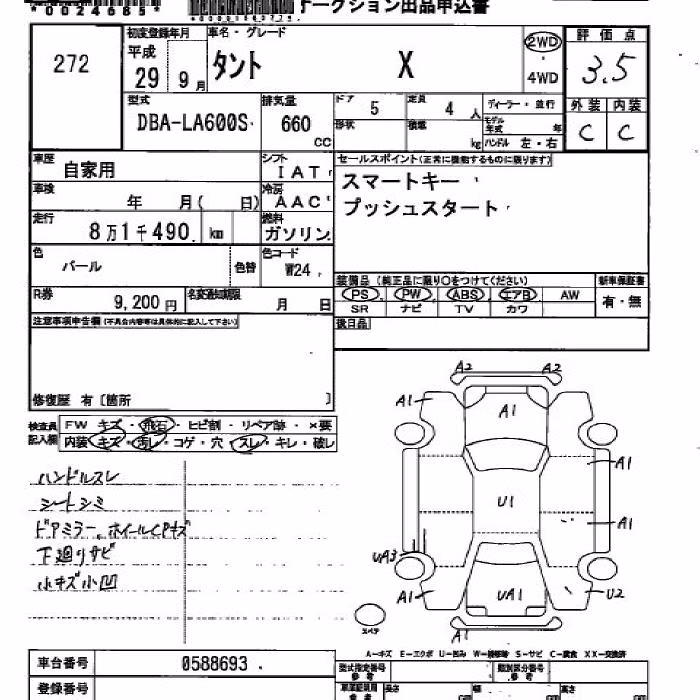 *0024685*
オークション出品申込書
272
初度登録年月
平成
29 9月
車名・グレード
タント X
2WD
・
4WD
評価点
3.5
型式
DBA-LA600S
排気量
660
cc
ドア 5
定員 4 人
形状
積載 kg
ディーラー・並行
モデル年式 年
ハンドル 左・右
外装 内装
C C
車歴
自家用
シフト
IAT
車検
年 月( 日)
冷房
AAC
走行
8万1千490 km
燃料
ガソリン
セールスポイント(正常に機能するものに限ります)
スマートキー
プッシュスタート
色
パール
色替
色コード
W24
R券
9,200円
名変通知期限
月 日
装備品(純正品に限り〇をつけてください)
PS PW ABS エアB AW
SR ナビ TV カワ
新車保証書
有・無
後日品
注意事項申告欄(不具合内容等は具体的に記入して下さい)
修復歴 有〔箇所 〕
検査員記入欄
FW キズ・飛石・ヒビ割・リペア跡・×要
内装 キズ・汚レ・コゲ・穴・スレ・キレ・破レ
ハンドルスレ
シートシミ
ドアミラー、ホイールCPキズ
下廻りサビ
小キズ小凹
A2 A2
A1 A1
A1
U1
A1
UA3
A1 UA1 U2
A1
スペア
A-キズ E-エクボ U-凹み W-補修跡 S-サビ C-腐食 XX-交換済
車台番号 0588693
登録番号
型式指定番号
参考
類別区分番号
参考
長さ 幅 高さ
参考